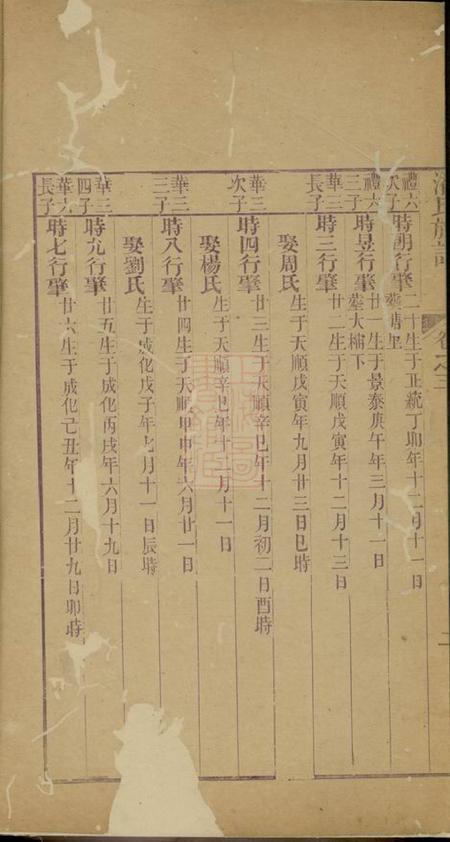 族
禮六次子 時明行肇二十生于正統丁卯年十二月十一日
墓塘里
禮六三子 時昱行肇廿一生于景泰庚午年三月十一日
墓大楠下
華三長子 時三行肇廿二生于天順戊寅年十二月十三日
娶周氏生于天順戊寅年九月廿三日巳時
華三次子 時四行肇廿三生于天順辛巳年十二月初二日酉時
娶楊氏生于天順辛巳年十一月十一日
華三三子 時八行肇廿四生于天順甲申年六月廿一日
娶劉氏生于成化戊子年七月十一日辰時
華三四子 時九行肇廿五生于成化丙戌年六月十九日
華六長子 時七行肇廿六生于成化己丑年十二月廿九日卯時